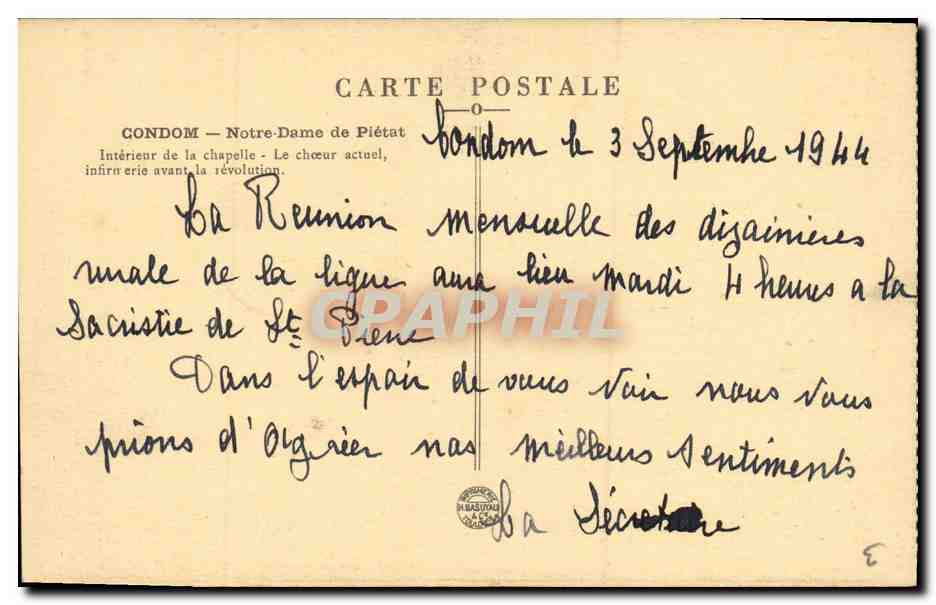 CARTE POSTALE
CONDOM — Notre-Dame de Piétat
Intérieur de la chapelle - Le chœur actuel,
infirmerie avant la révolution.
Condom le 3 Septembre 1944
La Reunion mensuelle des dizainières
rurale de la ligue aura lieu mardi 4 heures a la
Sacristie de St Pierre
Dans l'espoir de vous voir nous vous
prions d'Agréer nos meilleurs sentiments
La Sécretaire
CPAPHIL
IMPRIMERIE
E